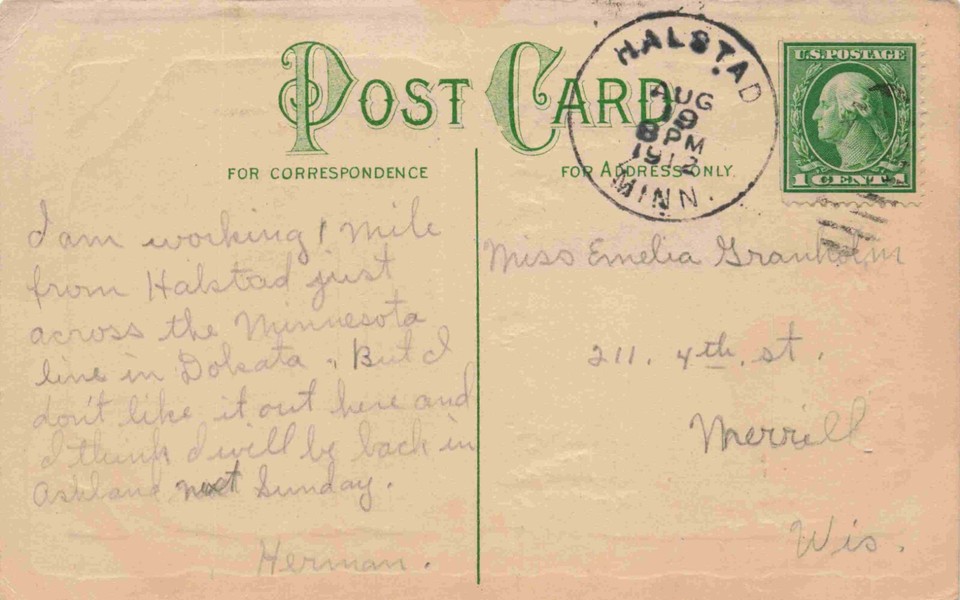 POST CARD
FOR CORRESPONDENCE
FOR ADDRESS ONLY.
HALSTAD
AUG
19
8 PM
1912
MINN.
U.S. POSTAGE
1 CENT 1
I am working 1 mile
from Halstad just
across the Minnesota
line in Dokata. But I
don't like it out here and
I think I will by back in
Ashland next Sunday.
Herman.
Miss Emelia Granholm
211. 4th. st.
Merrill
Wis.